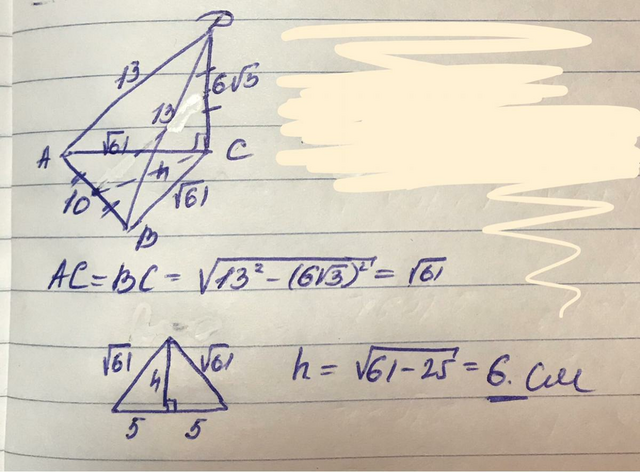 D
13
6√3
13
A
√61
C
h
√61
10
B
AC = BC = √13² - (6√3)² = √61
√61
√61
h
h = √61 - 25 = 6. см
5
5